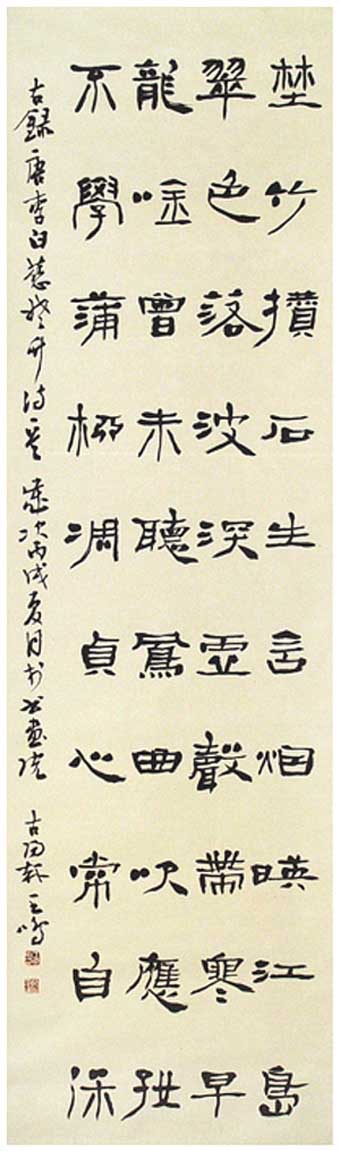 埜竹攢石生含烟映江島
翠色落波深虛聲帶寒早
龍唫曾未聽鳳曲吹應好
不學蒲柳凋貞心常自保
右錄唐李白慈姥竹詩一首 歲次丙戌夏月於書畫院 古軒 王鳴